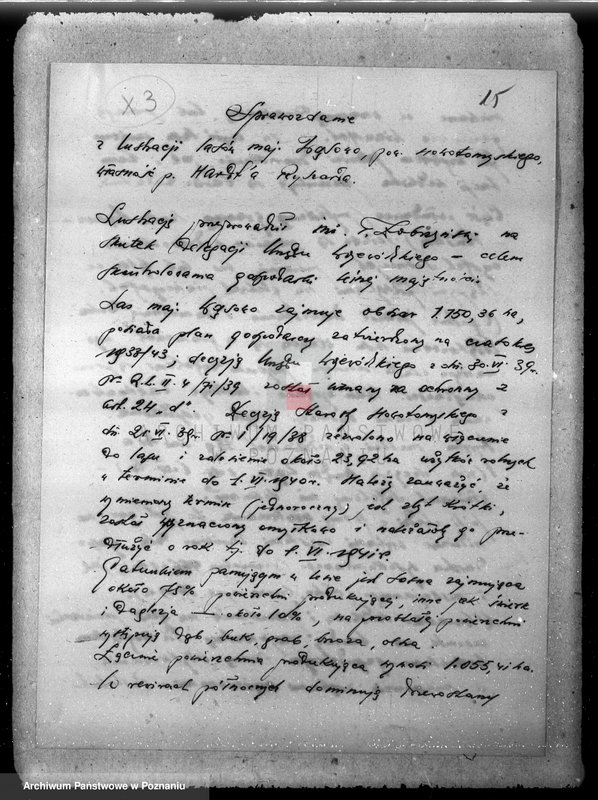 X3
15
Sprawozdanie
z lustracji lasów maj. Łągowo, pow. nowotomyskiego,
własność p. Hardt'a Ryszarda.
Lustrację przeprowadził inż. T. na
skutek delegacji Urzędu Wojewódzkiego – celem
skontrolowania gospodarki leśnej majętności.
Las maj. zajmuje obszar 1.750,36 ha,
posiada plan gospodarczy zatwierdzony na czasokres
1933/43; decyzją Urzędu Wojewódzkiego z dn. 30.VI.39r.
nr. 4/71/39 został uznany za ochronny z
art. 24 „d". Decyzją Starosty Nowotomyskiego z
dn. 21.VI.39r. nr. 1/19/38 zezwolono na
do lasu i zalesienie około 23,92 ha użytków rolnych
w terminie do 1.VI.1940r. Należy zauważyć, że
wymieniony termin (jednoroczny) jest zbyt krótki,
został wyznaczony omyłkowo i należałoby go prze-
dłużyć o rok tj. do 1.VI.1941r.
Gatunkiem panującym w lesie jest sosna zajmująca
około 75% powierzchni produkującej, inne jak świerk
i daglezja – około 10%, na pozostałej powierzchni
występują dąb, buk, grab, brzoza, olcha.
Łącznie powierzchnia produkująca wynosi 1.655,41 ha.
W rewirach północnych dominują drzewostany
ARCHIWUM PAŃSTWOWE
POZNAŃ
Archiwum Państwowe w Poznaniu